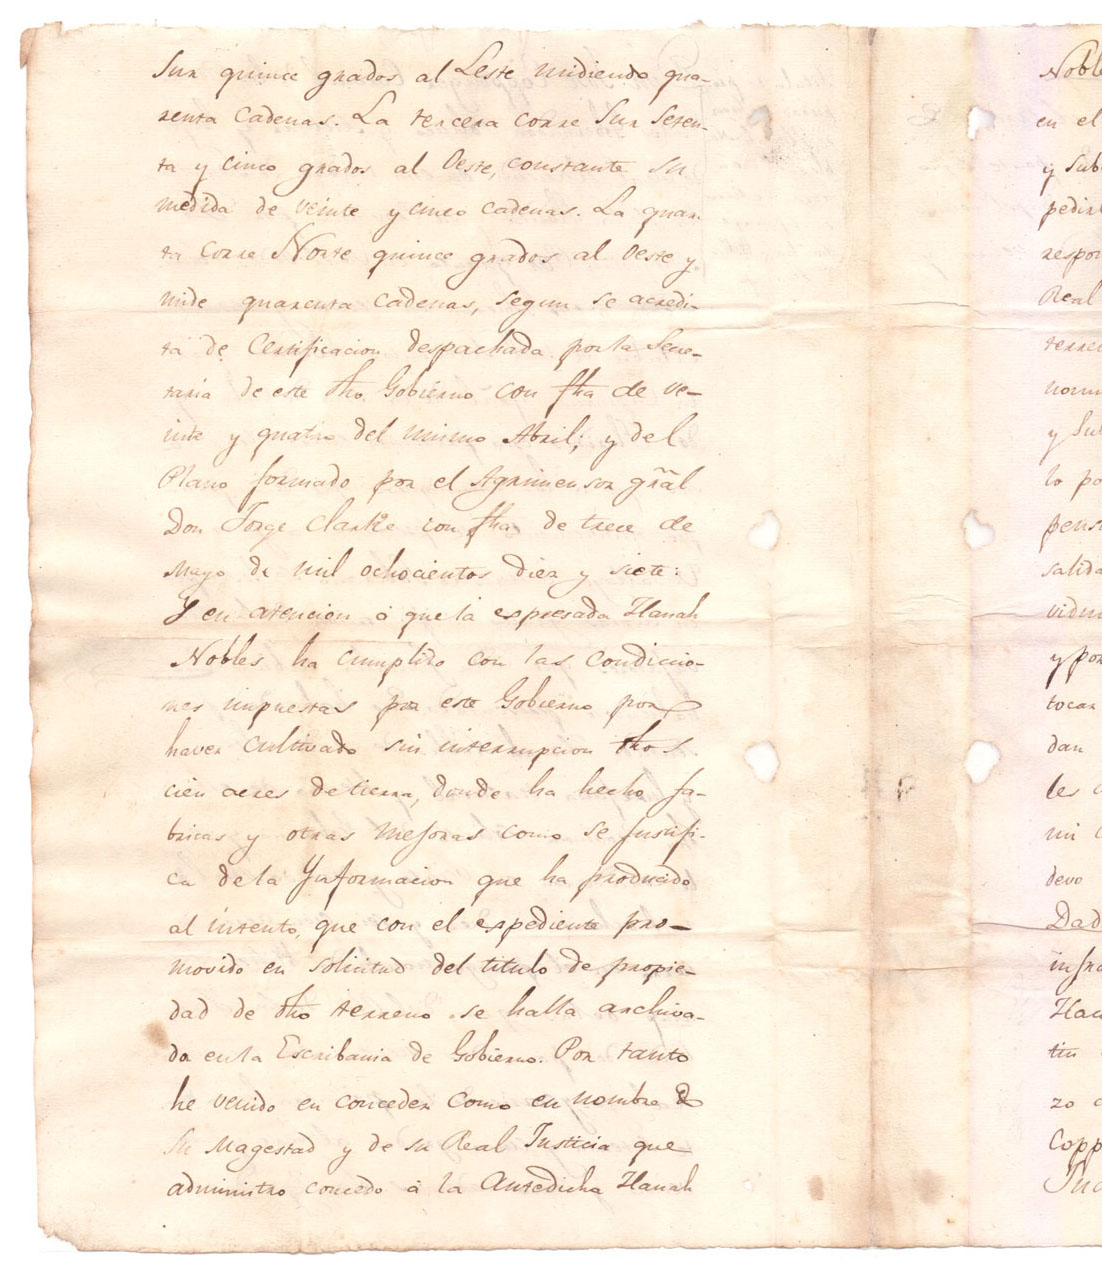 Sur quince grados al Leste midiendo qua-
renta Cadenas. La tercera corre Sur Seten-
ta y cinco grados al Oeste, constante su
medida de veinte y cinco cadenas. La quar-
ta corre Norte quince grados al Oeste y
mide quarenta cadenas, segun se acredi-
ta de Certificacion despachada por la Secre-
taria de este dho Gobierno con fha de ve-
inte y quatro del mismo Abril; y del
Plano formado por el Agrimensor gñãl
Don Jorge Clarke con fha de trece de
Mayo de mil ochocientos diez y siete:
Y en atencion á que la expresada Hanah
Nobles ha cumplido con las condicio-
nes impuestas por este Gobierno por
haver cultivado sin interrupcion dhos
cien acres de tierra, donde ha hecho fa-
bricas y otras mejoras como se justifi-
ca de la Ynformacion que ha producido
al intento, que con el expediente pro-
movido en solicitud del titulo de propie-
dad de dho terreno se halla archiva-
do en la Escribania de Gobierno. Por tanto
he venido en conceder como en nombre de
Su Magestad y de su Real Justicia que
administro concedo á la Antedicha Hanah
Noble
en el
y Sub
pedir
respon
Real
terren
nomi
y Sub
lo po
pens
salida
vidu
y por
tocar
dan
les
mi
devo
Dad
infra
Hac
tin
zo
Copp